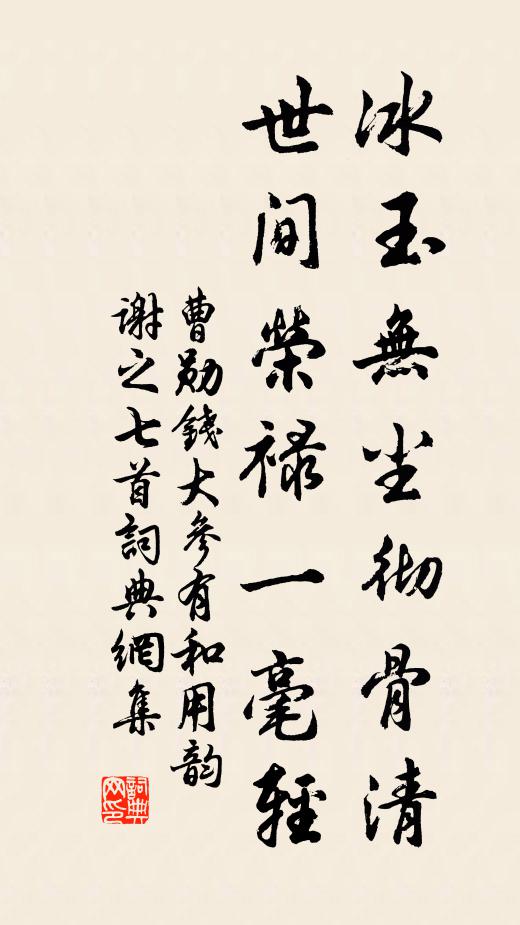 冰玉無尘彻骨清
世間榮禄一毫輕
曹勋錢大參有和用韵
謝之七首詞典網集
詞典
网印